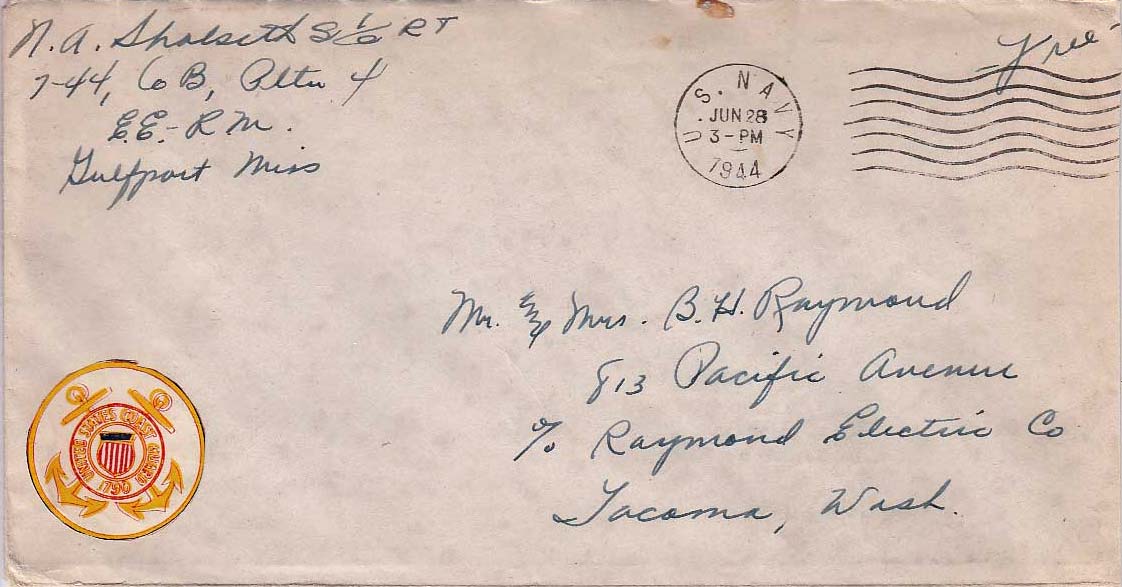 N. A. Skalseth S 1/c RT
7-44, Co B, Platn 4
E.E.-R.M.
Gulfport Miss
U.S. NAVY
JUN 28
3-PM
1944
-Free-
Mr. & Mrs. B. H. Raymond
813 Pacific Avenue
c/o Raymond Electric Co
Tacoma, Wash.
UNITED STATES COAST GUARD
1790